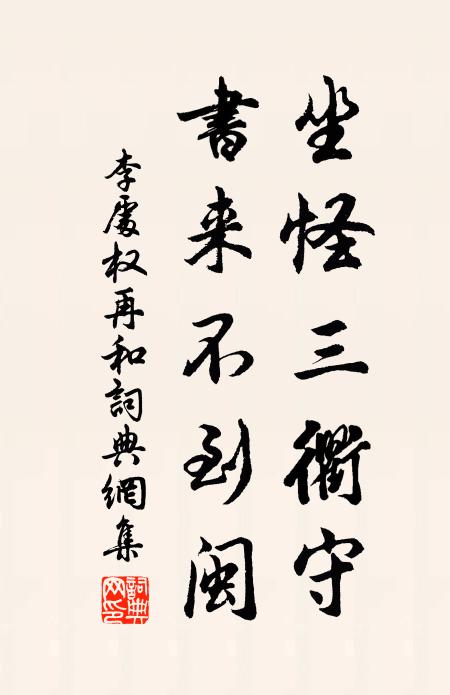 坐怪三衢守
書来不到閩
李處权再和詞典網集
詞典網印